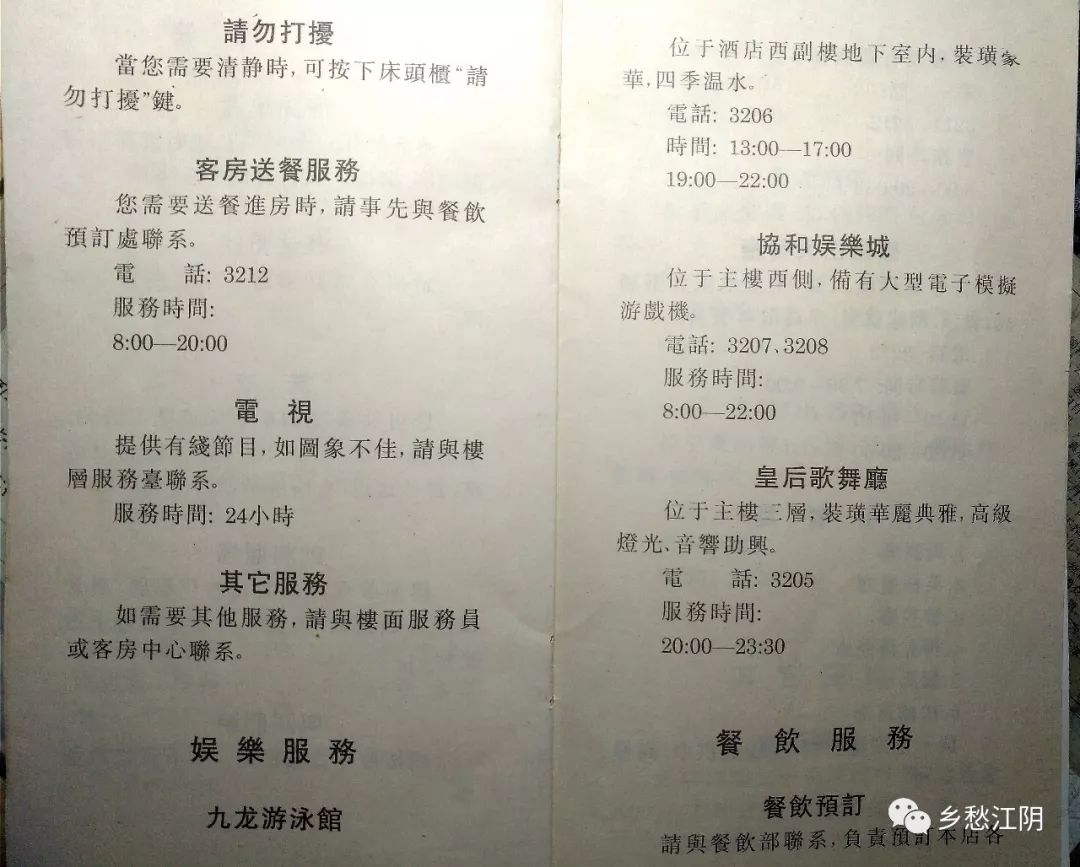 請勿打擾
當您需要清静時,可按下床頭櫃“請
勿打擾”鍵。
客房送餐服務
您需要送餐進房時,請事先與餐飲
預訂處聯系。
電 話: 3212
服務時間:
8:00—20:00
電 視
提供有綫節目,如圖象不佳,請與樓
層服務臺聯系。
服務時間: 24小時
其它服務
如需要其他服務,請與樓面服務員
或客房中心聯系。
娱樂服務
九龙游泳館
位于酒店西副樓地下室内,裝璜豪
華,四季温水。
電話: 3206
時間: 13:00—17:00
19:00—22:00
協和娱樂城
位于主樓西側,備有大型電子模擬
游戲機。
電話: 3207、3208
服務時間:
8:00—22:00
皇后歌舞廳
位于主樓三層,裝璜華麗典雅,高級
燈光、音響助興。
電 話: 3205
服務時間:
20:00—23:30
餐飲服務
餐飲預訂
請與餐飲部聯系,負責預訂本店各
乡愁江阴